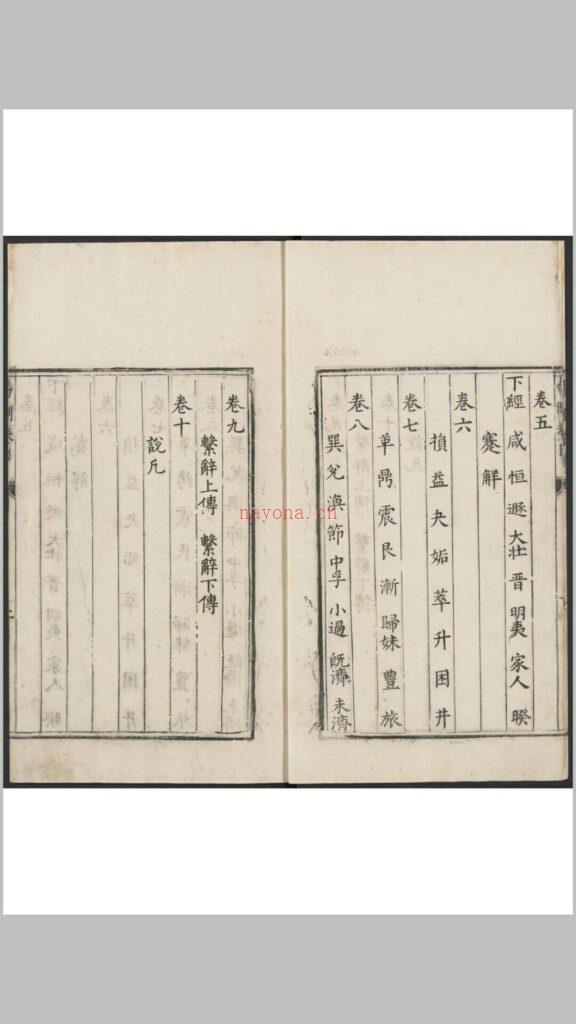 卷五
下經 咸 恒 遯 大壯 晉 明夷 家人 睽
蹇 解
卷六
損 益 夬 姤 萃 升 困 井
卷七
革 鼎 震 艮 漸 歸妹 豊 旅
卷八
巽 兊 渙 節 中孚 小過 旣濟 未濟
卷九
繫辭上傳 繫辭下傳
卷十
說凡
nayona.cn